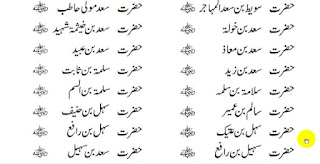 حضرت سویبط بن سعد المہاجر رضی اللہ عنہ حضرت سعد مولی حاطب رضی اللہ عنہ
حضرت سعد بن خولۃ رضی اللہ عنہ حضرت سعد بن خیثمۃ شہید رضی اللہ عنہ
حضرت سعد بن معاذ رضی اللہ عنہ حضرت سعد بن عبید رضی اللہ عنہ
حضرت سعد بن زید رضی اللہ عنہ حضرت سلمۃ بن ثابت رضی اللہ عنہ
حضرت سلامۃ بن سلمہ رضی اللہ عنہ حضرت سلمۃ بن اسلم رضی اللہ عنہ
حضرت سالم بن عمیر رضی اللہ عنہ حضرت سہل بن حنیف رضی اللہ عنہ
حضرت سہل بن عتیک رضی اللہ عنہ حضرت سہل بن رافع رضی اللہ عنہ
حضرت سہیل بن رافع رضی اللہ عنہ حضرت سعد بن سہیل رضی اللہ عنہ